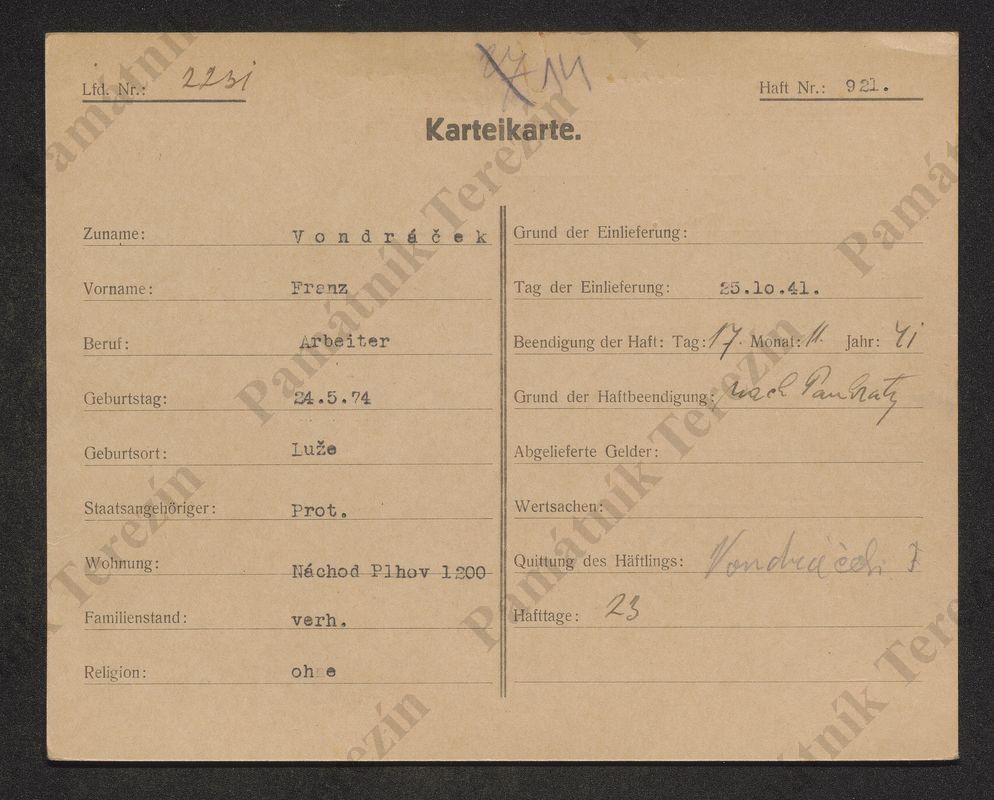 Lfd. Nr.: 2231
14
Haft Nr.: 921.
Karteikarte.
Zuname: Vondráček
Vorname: Franz
Beruf: Arbeiter
Geburtstag: 24.5.74
Geburtsort: Luže
Staatsangehöriger: Prot.
Wohnung: Náchod Plhov 1200
Familienstand: verh.
Religion: ohne
Grund der Einlieferung:
Tag der Einlieferung: 25.10.41.
Beendigung der Haft: Tag: 17. Monat: 11. Jahr: 41
Grund der Haftbeendigung: nach Pankratz
Abgelieferte Gelder:
Wertsachen:
Quittung des Häftlings: Vondráček
Hafttage: 23
Památník Terezín